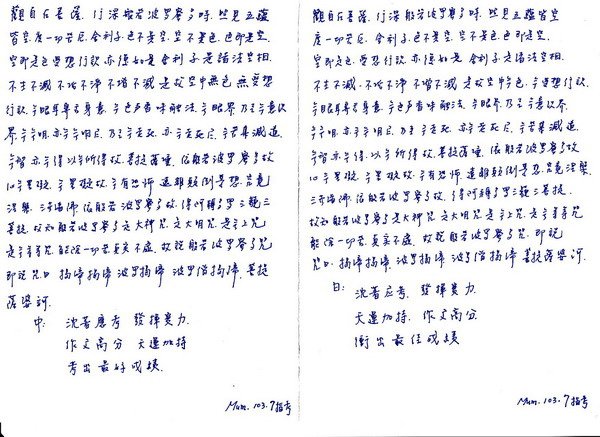 觀自在菩薩，行深般若波羅蜜多時，照見五蘊
皆空，度一切苦厄，舍利子，色不異空，空不異色，色即是空，
空即是色，受想行識，亦復如是，舍利子，是諸法空相，
不生不滅，不垢不淨，不增不減，是故空中無色，無受想
行識，無眼耳鼻舌身意，無色声香味触法，無眼界，乃至無意识
界，無無明，亦無無明尽，乃至無老死，亦無老死尽，無苦集滅道，
無智亦無得，以無所得故，菩提薩埵，依般若波罗蜜多故
心無罣碍，無罣碍故，無有恐怖，遠離顛倒夢想，究竟
涅槃，三世諸佛，依般若波罗蜜多故，得阿耨多罗三藐三
菩提，故知般若波罗蜜多，是大神咒，是大明咒，是無上咒，
是無等等咒，能除一切苦，真实不虛，故說般若波罗蜜多咒
即說咒曰，揭諦揭諦，波罗揭諦，波罗僧揭諦，菩提
薩婆訶。
中：沈著應考 發揮實力
作文高分 天運加持
考出最好成績。
Mum. 103.7指考
觀自在菩薩，行深般若波羅蜜多時，照見五蘊皆空，
度一切苦厄，舍利子，色不異空，空不異色，色即是空，
空即是色，受想行识，亦復如是，舍利子，是諸法空相，
不生不滅，不垢不淨，不增不減，是故空中無色，無受想行识，
無眼耳鼻舌身意，無色声香味触法，無眼界，乃至無意识界，
無無明，亦無無明尽，乃至無老死，亦無老死尽，無苦集滅道，
無智亦無得，以無所得故，菩提薩埵，依般若波罗蜜多故
心無罣碍，無罣碍故，無有恐怖，遠離顛倒夢想，究竟涅槃，
三世諸佛，依般若波罗蜜多故，得阿耨多罗三藐三菩提，
故知般若波罗蜜多，是大神咒，是大明咒，是無上咒，是無等等咒，
能除一切苦，真实不虛，故說般若波罗蜜多咒，即說
咒曰，揭諦揭諦，波罗揭諦，波罗僧揭諦，菩提薩婆訶。
日：沈著应考，發揮實力，
天運加持，作文高分
衝出最佳成績
Mum. 103.7指考